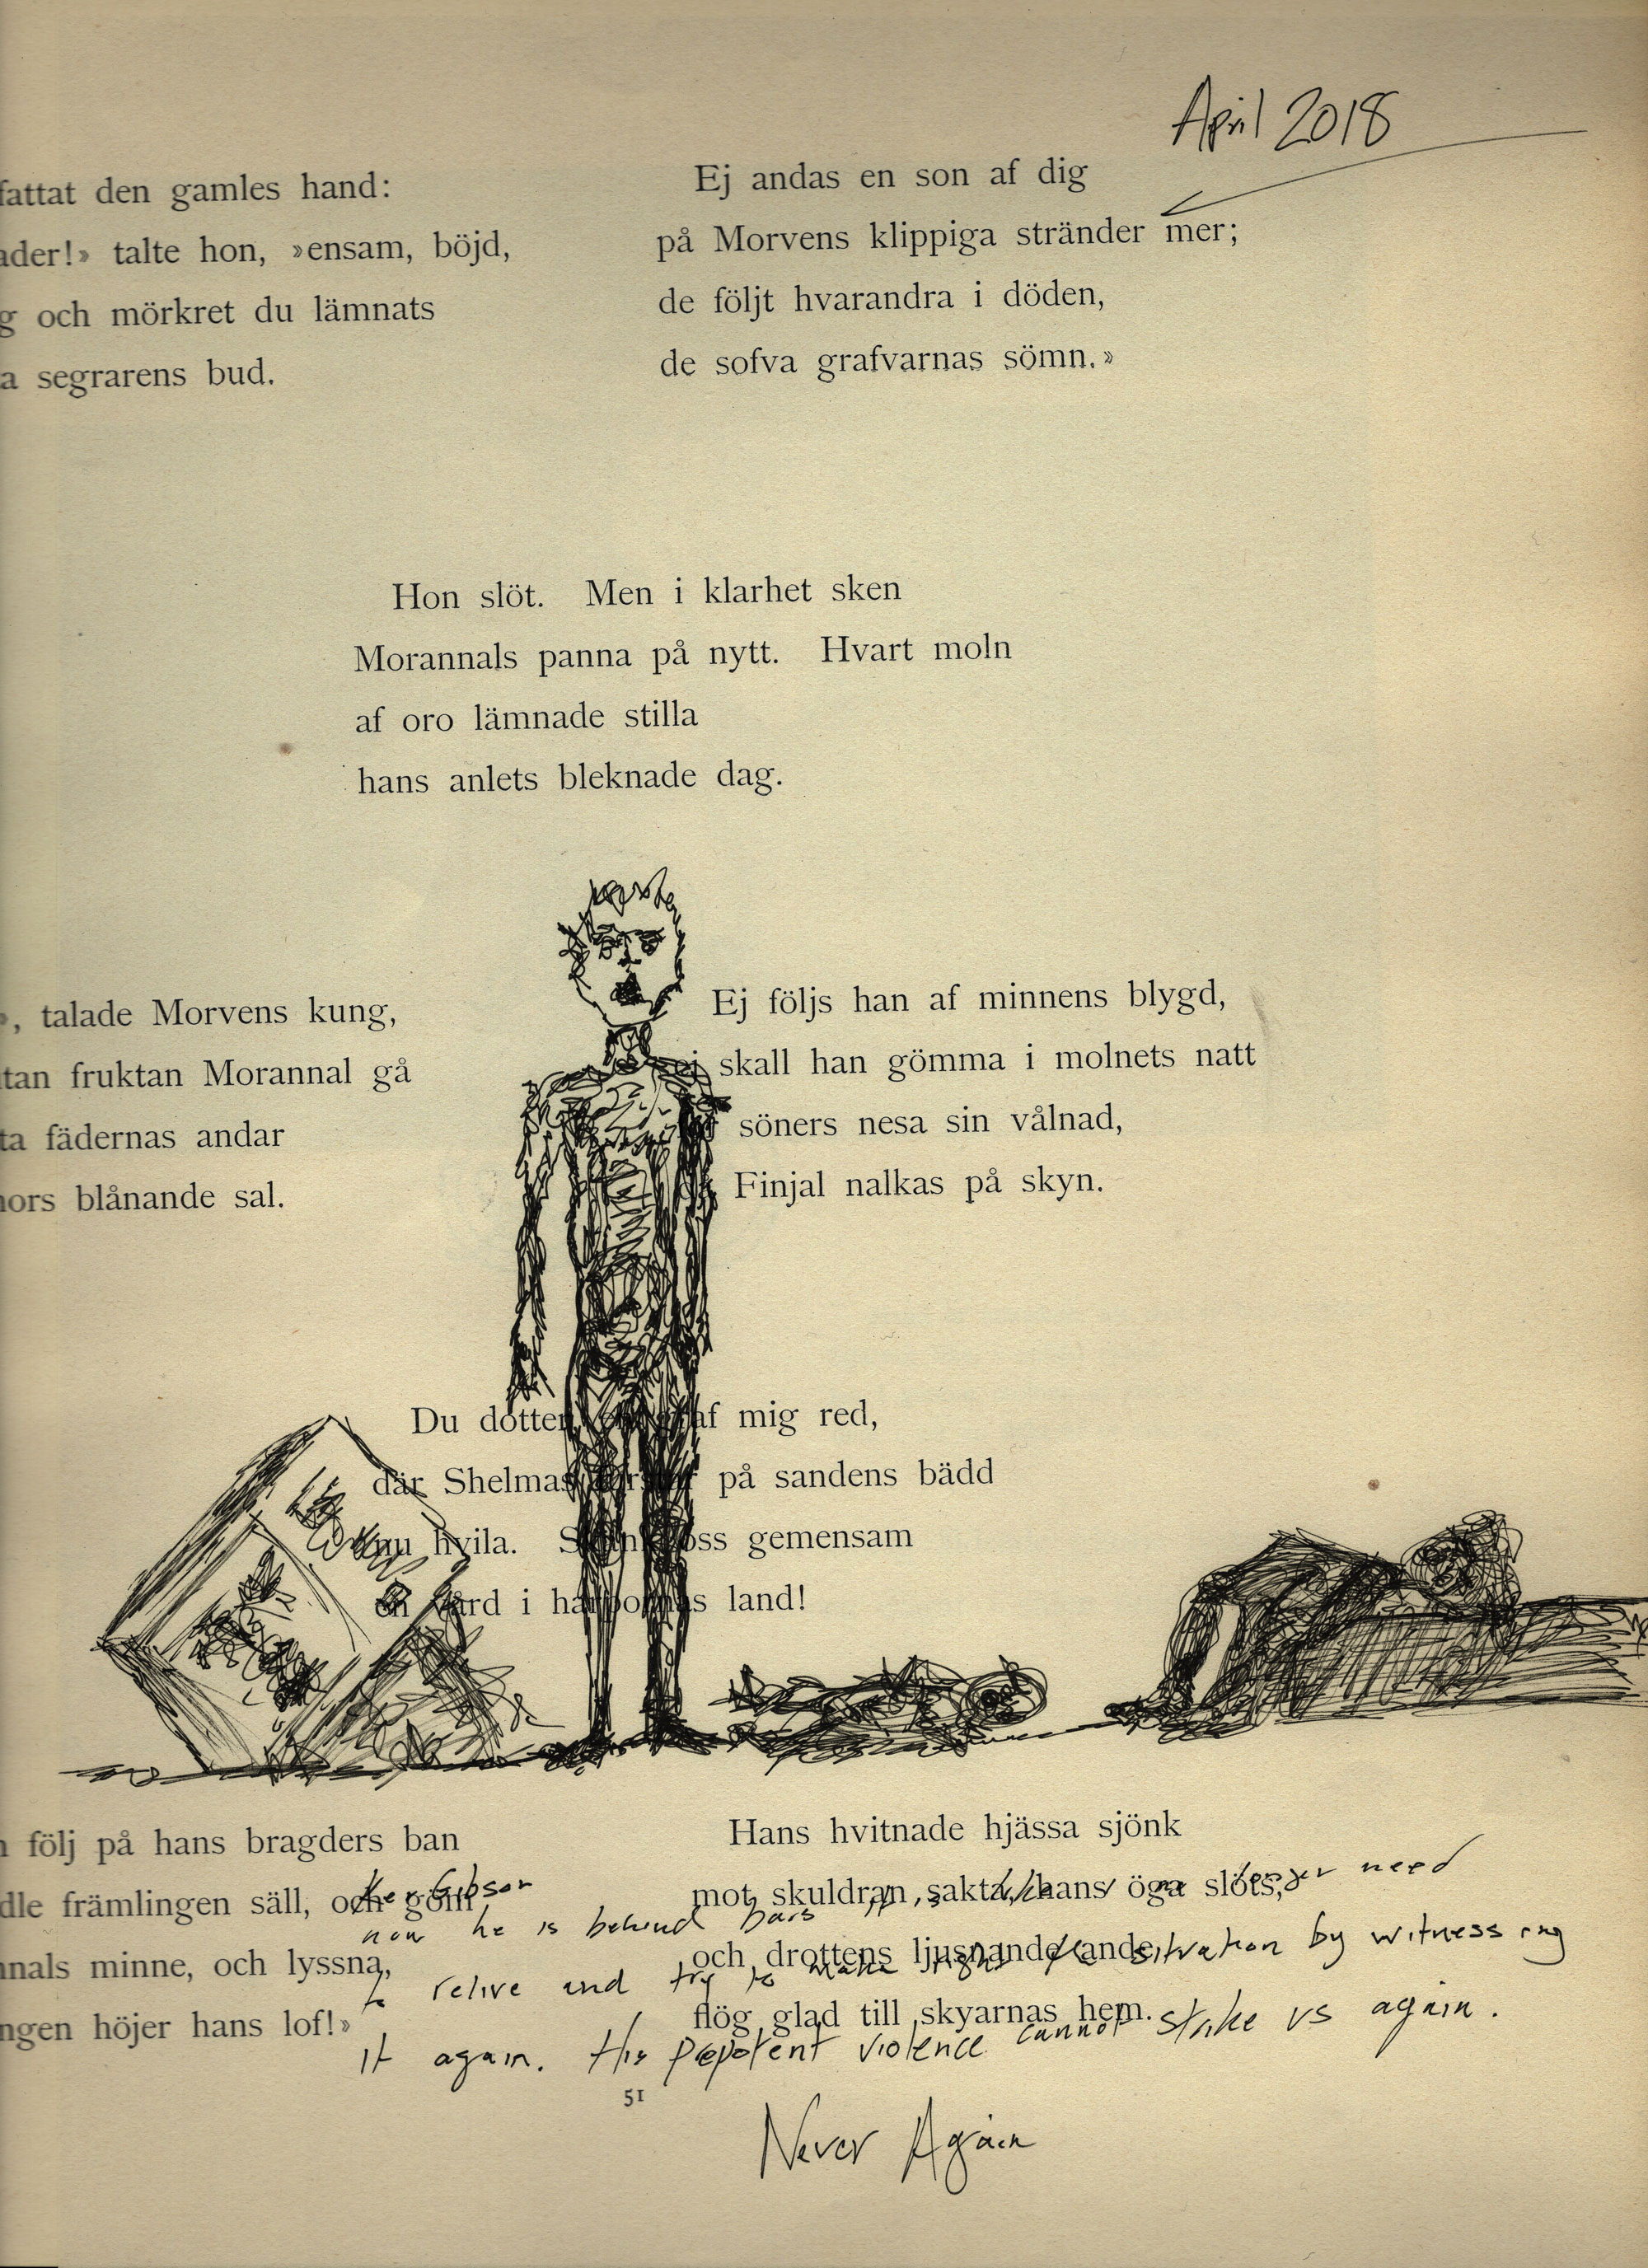 April 2018
fattat den gamles hand:
ader!» talte hon, »ensam, böjd,
g och mörkret du lämnats
a segrarens bud.
Ej andas en son af dig
på Morvens klippiga stränder mer;
de följt hvarandra i döden,
de sofva grafvarnas sömn.»
Hon slöt. Men i klarhet sken
Morannals panna på nytt. Hvart moln
af oro lämnade stilla
hans anlets bleknade dag.
», talade Morvens kung,
tan fruktan Morannal gå
ta fädernas andar
nors blånande sal.
Ej följs han af minnens blygd,
ej skall han gömma i molnets natt
söners nesa sin vålnad,
Finjal nalkas på skyn.
Du dotter af mig red,
där Shelmas på sandens bädd
nu hvila. oss gemensam
en vård i harpornas land!
n följ på hans bragders ban
dle främlingen säll, och göm
nnals minne, och lyssna,
ngen höjer hans lof!»
Hans hvitnade hjässa sjönk
mot skuldran sakta, hans öga slöts,
och drottens ljusnande ande
flög glad till skyarnas hem.
Gibson
now he is behind bars longer need
to relive and try to make right the situation by witnessing
it again. His prepotent violence cannot strike us again.
51
Never Again